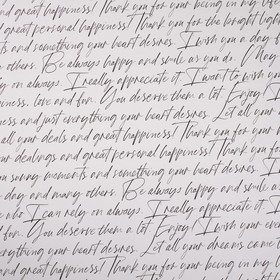 and great happiness! Thank you for your being in my life
great personal happiness! Thank you for the bright light
s and something your heart desires. I wish you a day f
others. Be always happy and smile as you do. May
y on always. I really appreciate it. I want to wish you
iness, love and fun. You deserve them a lot. Enjoy! I
ness and just everything your heart desires. Let all your
all your deals and great happiness! Thank you for your
your dealings and great personal happiness! Thank you
you sunny moments and something your heart desires.
day and many others. Be always happy and smile as
who I can rely on always. I really appreciate it. I
and fun. You deserve them a lot. Enjoy! I wish your ever
ything your heart desires. Let all your dreams come t
and great happiness! Thank you for your being in my